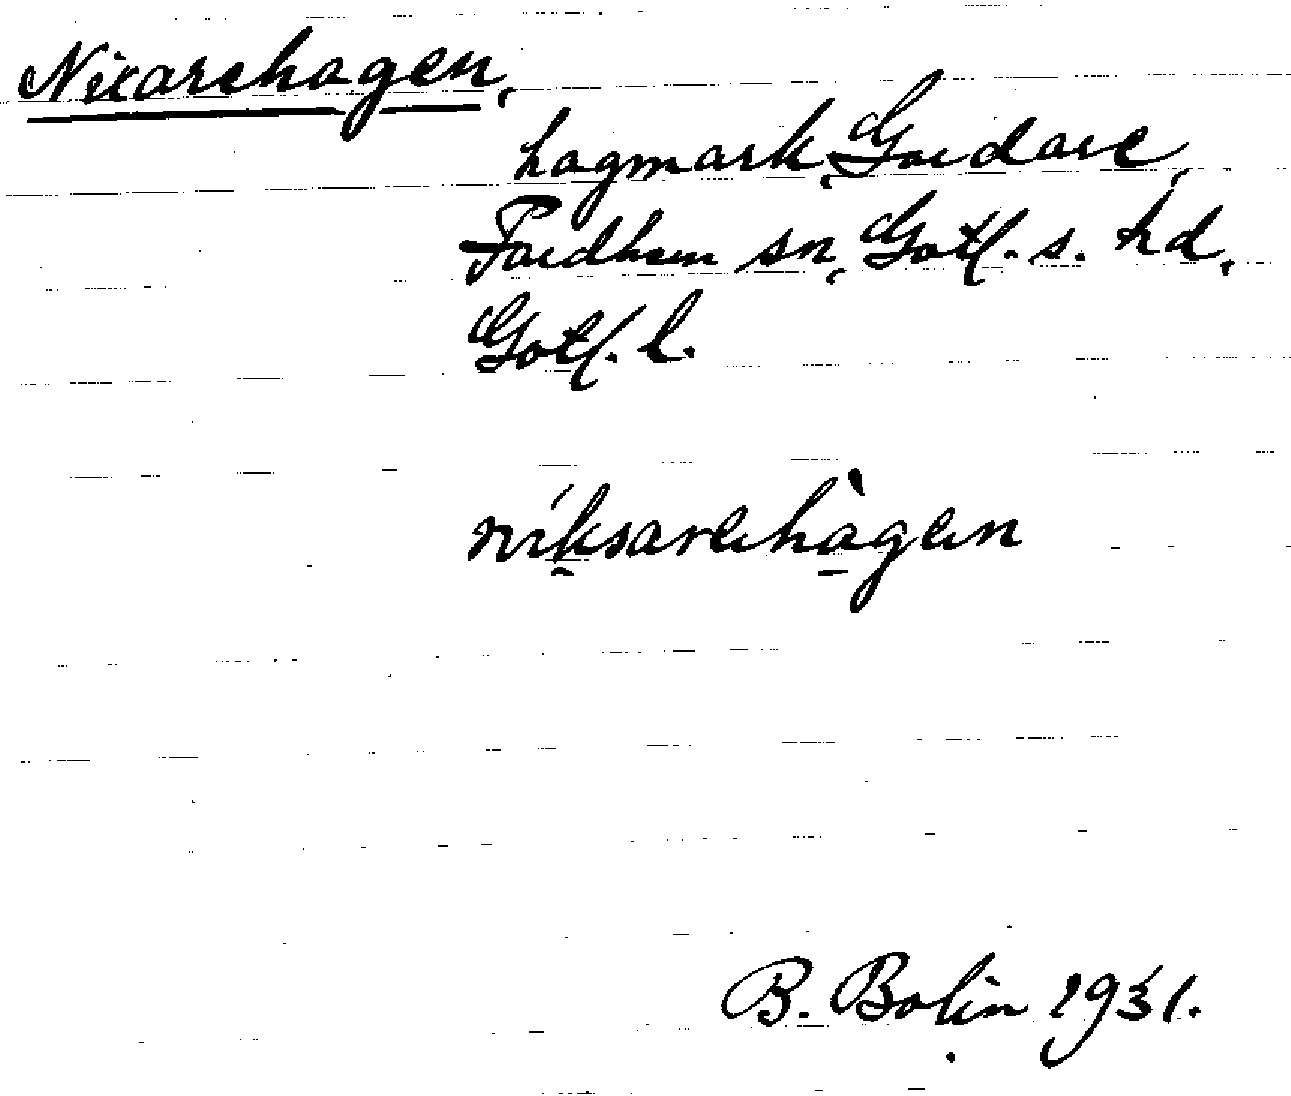 Nixarehagen,
hagmark, Gardare,
Fardhem sn, Gotl. s. hd,
Gotl. l.
niksarehàgen
B. Bolin 1931.